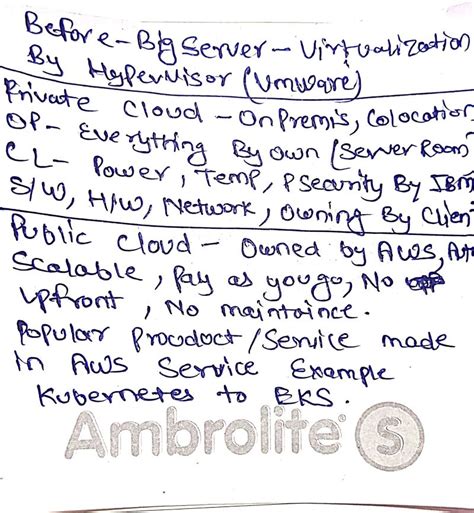 Before - Big Server - Virtualization
By HyperVisor (Vmware)
Private Cloud - OnPremis, Colocation,
OP - Everything By Own (Server Room
CL - Power, Temp, PSecurity By IBM
S/W, H/W, Network, Owning By Clien
Public Cloud - Owned by AWS,
Scalable, Pay as you go, No
upfront, No maintaince.
Popular Proudoct/Service made
in AWS Service Example
Kubernetes to EKS.
Ambrolite S